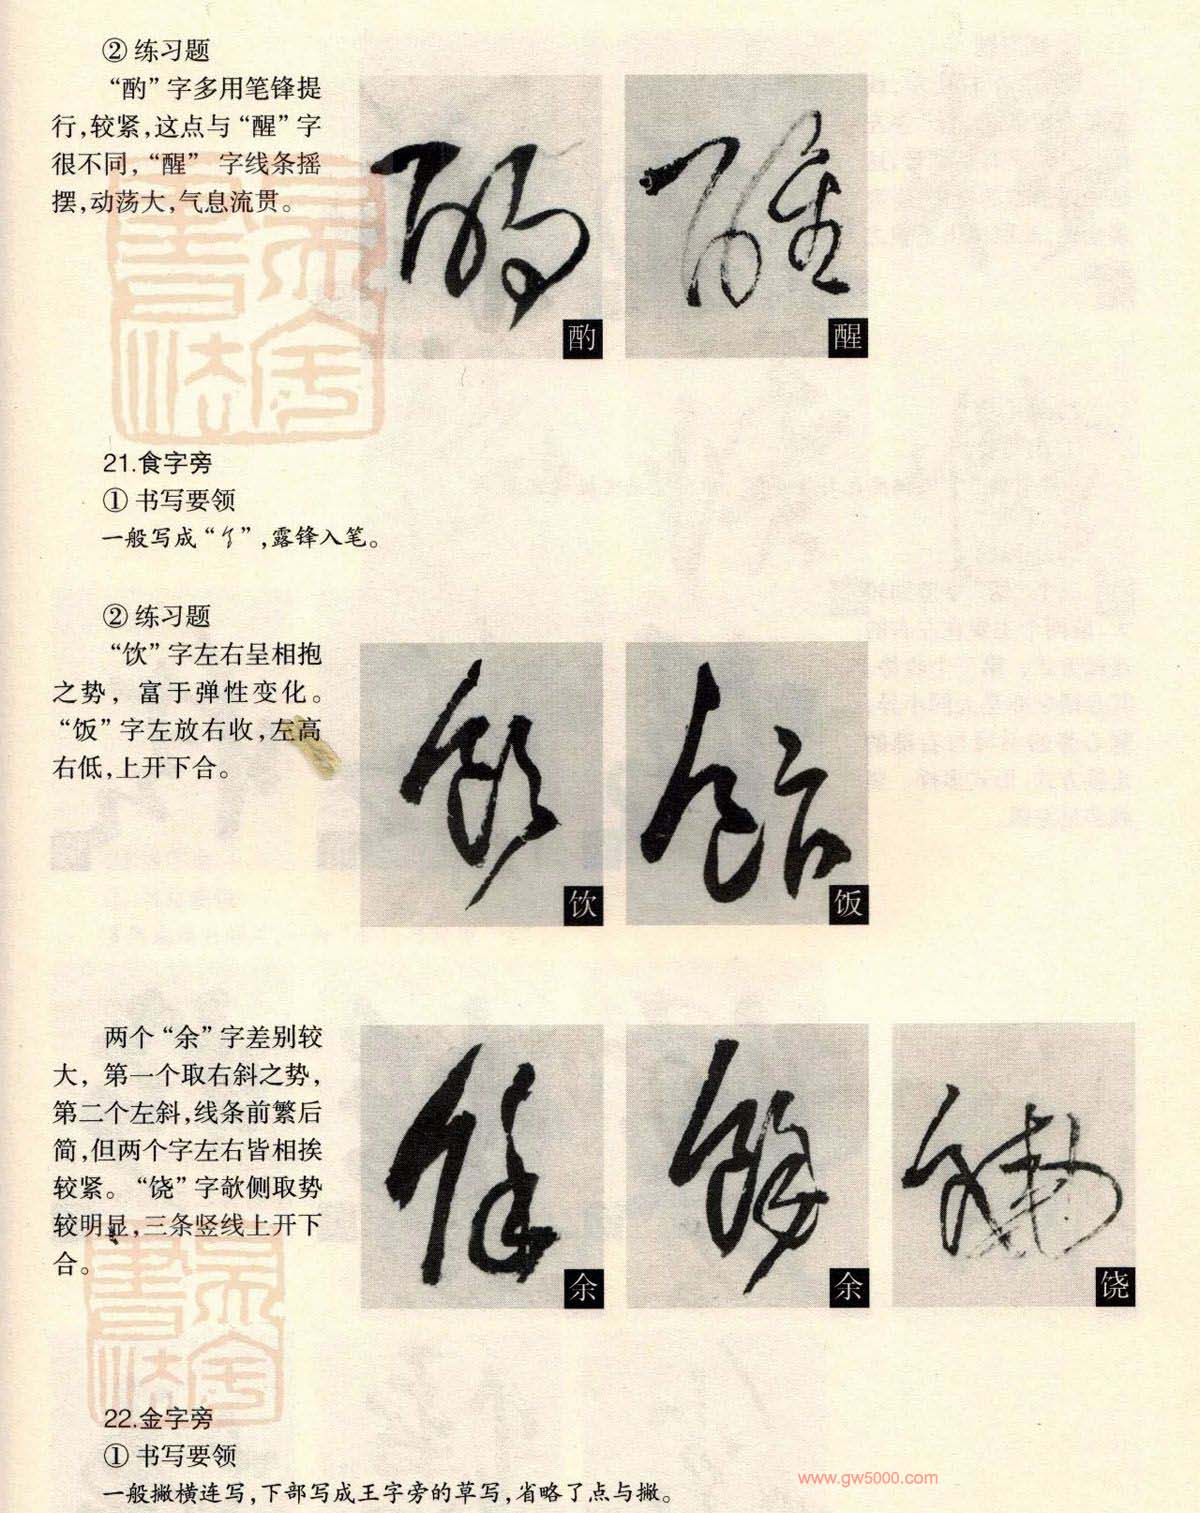 ② 练习题
“酌”字多用笔锋提
行,较紧,这点与“醒”字
很不同,“醒” 字线条摇
摆,动荡大,气息流贯。
酌
醒
21.食字旁
① 书写要领
一般写成“饣”,露锋入笔。
② 练习题
“饮”字左右呈相抱
之势, 富于弹性变化。
“饭”字左放右收,左高
右低,上开下合。
饮
饭
两个“余”字差别较
大, 第一个取右斜之势,
第二个左斜,线条前繁后
简,但两个字左右皆相挨
较紧。“饶”字欹侧取势
较明显,三条竖线上开下
合。
余
余
饶
22.金字旁
① 书写要领
一般撇横连写,下部写成王字旁的草写,省略了点与撇。
www.gw5000.com